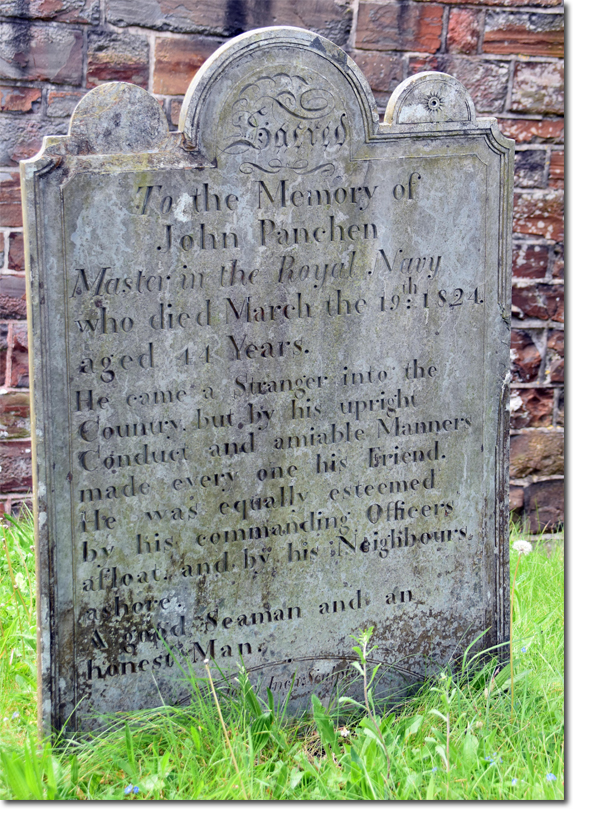 Sacred
To the Memory of
John Panchen
Master in the Royal Navy
who died March the 19th: 1824.
aged 44 Years.
He came a Stranger into the
Country, but by his upright
Conduct and amiable Manners
made every one his Friend.
He was equally esteemed
by his commanding Officers
afloat, and by his Neighbours,
ashore.
A good Seaman and an
honest Man.